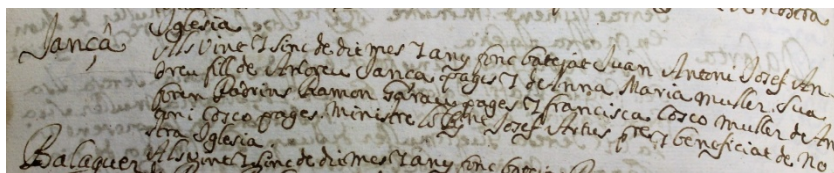 Iglesia
Jançà Als vint y sinc de dit mes y any fonc batejat Juan Antoni Josef An-
dreu fill de Andreu Jança pages y de Anna Maria muller sua
foren Padrins Ramon Garau pages y Francisca Cosco muller de An
toni Cosco pages. Ministre lo Josef Artus pre y beneficiat de No
stra Iglesia.
Balaguer Als vint y sinc de dit mes y any fonc batejat